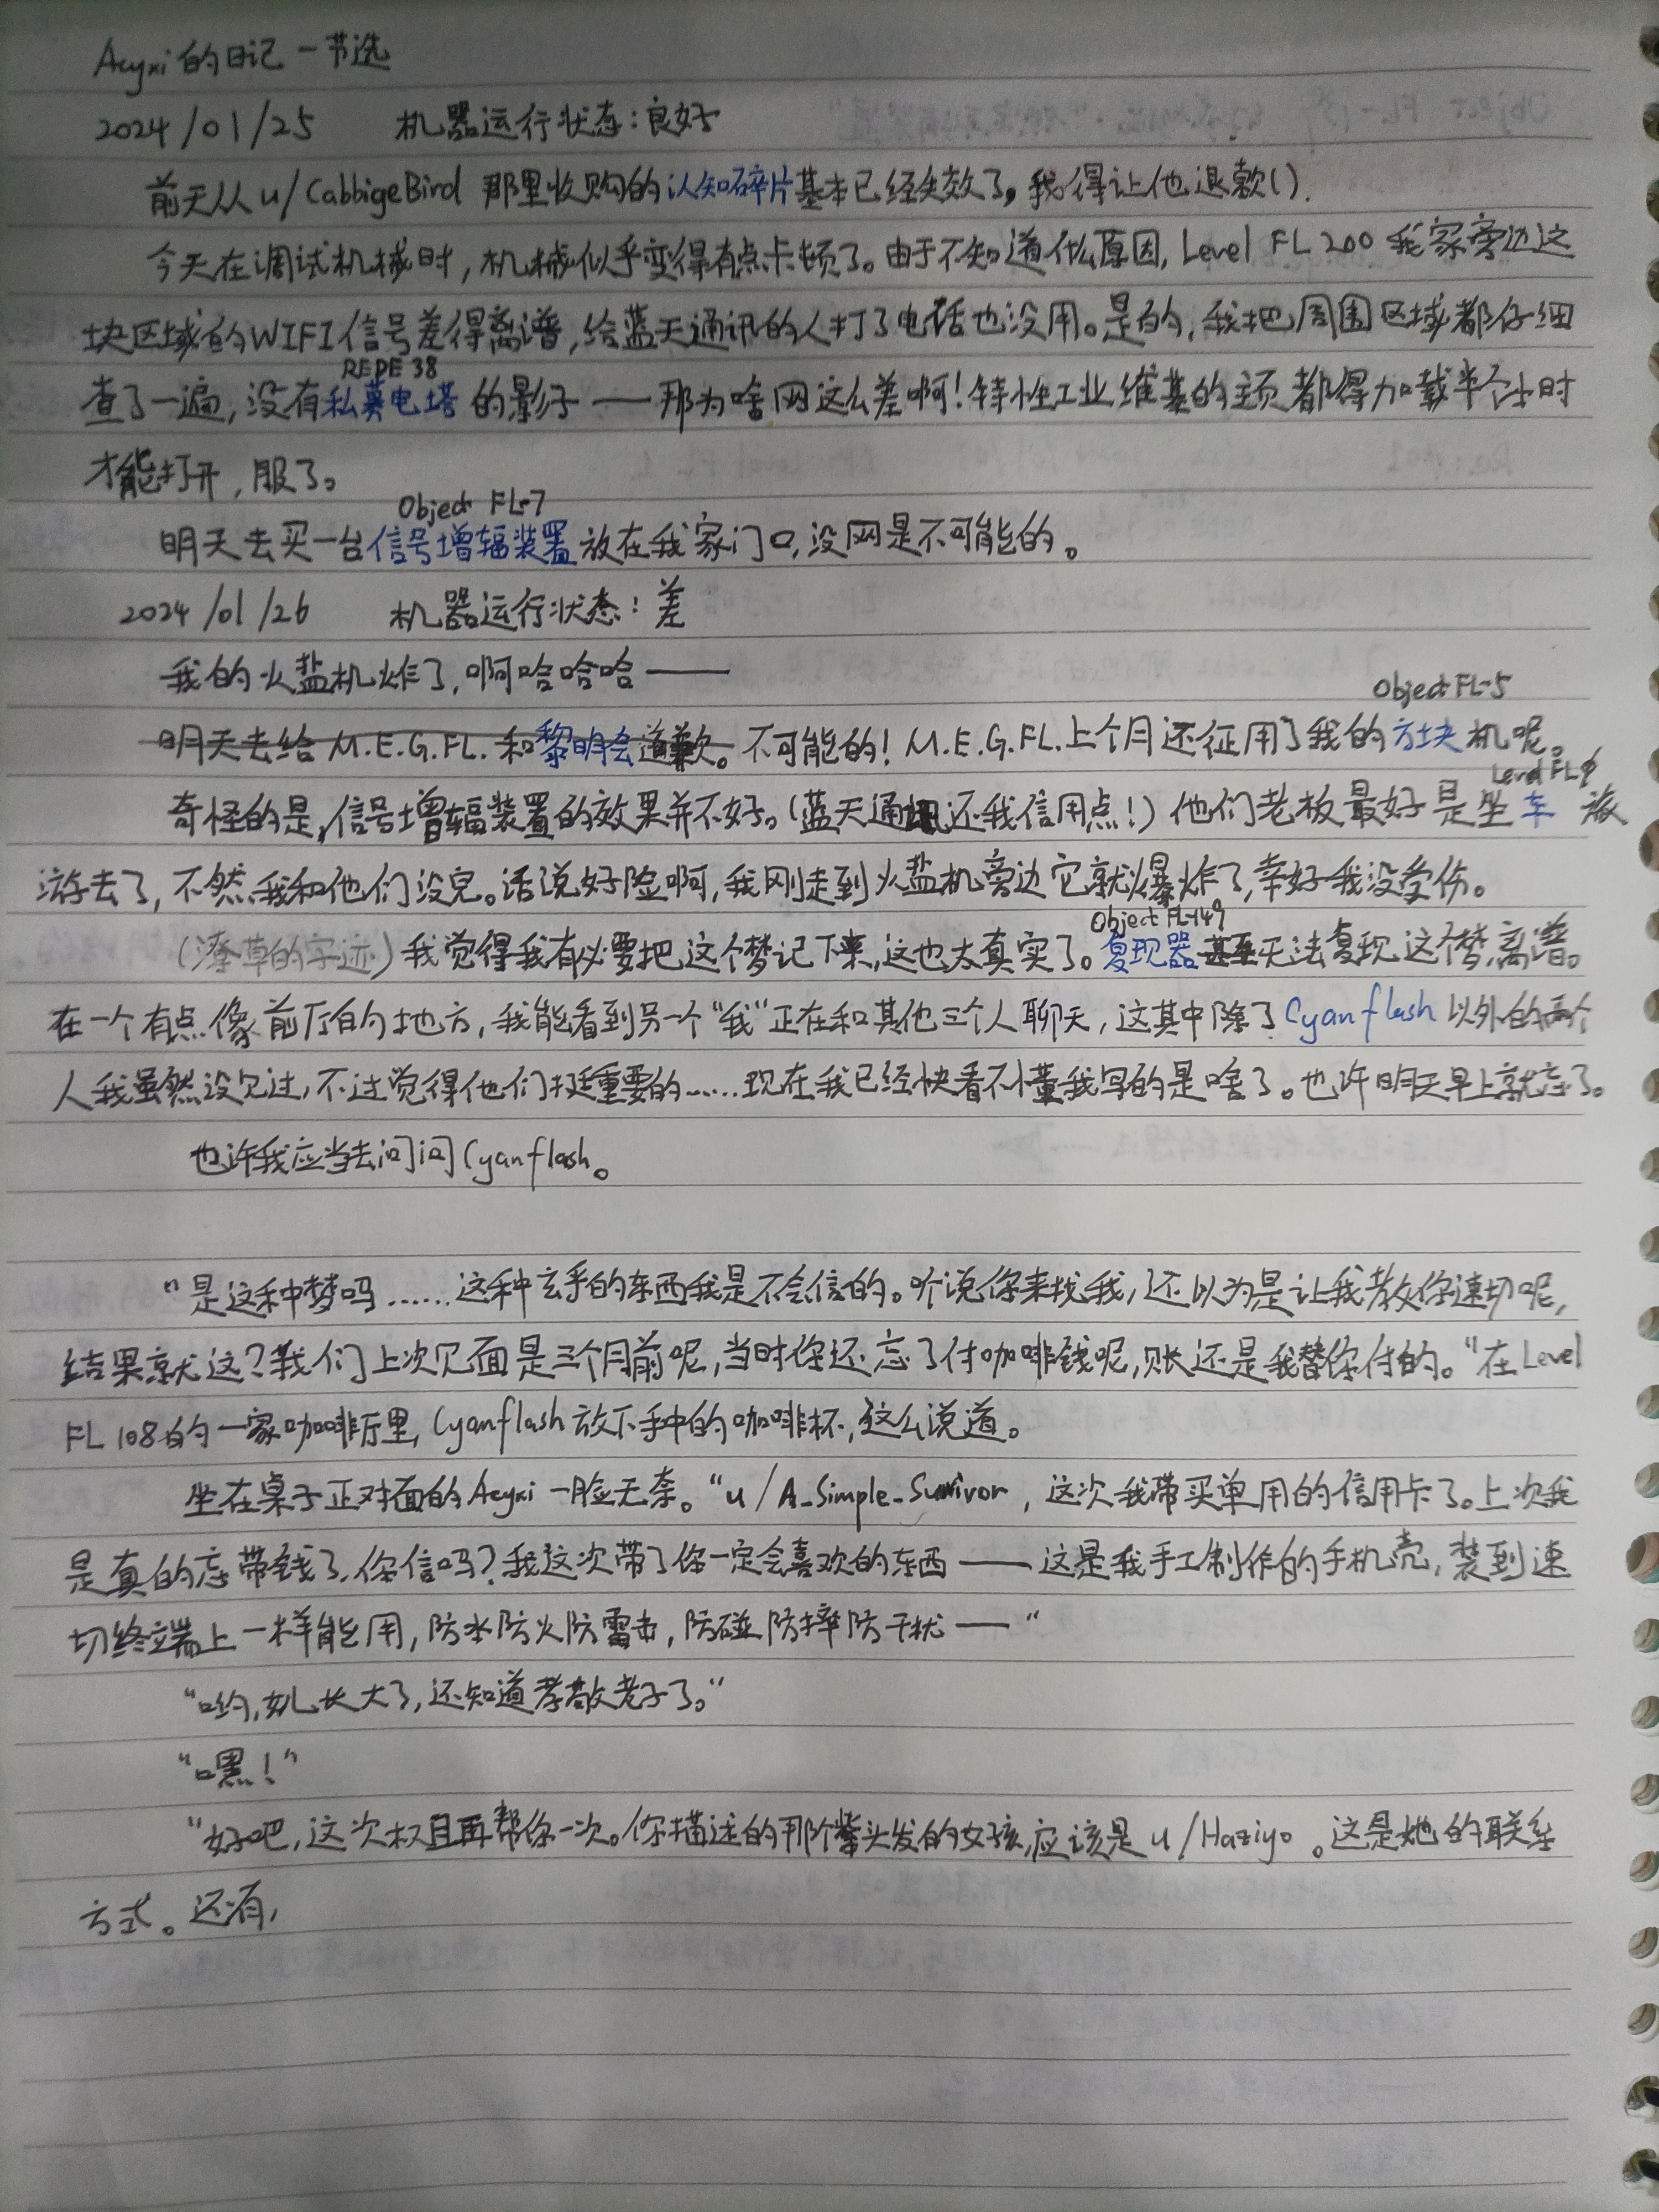 Acyxi的日记 — 节选
2024/01/25 机器运行状态:良好
前天从u/CabbigeBird 那里收购的认知碎片基本已经失效了,我得让他退款().
今天在调试机械时,机械似乎变得有点卡顿了。由于不知道什么原因,Level FL 200 我家旁边这
块区域的WIFI信号差得离谱,给蓝天通讯的人打了电话也没用。是的,我把周围区域都仔细
REPE 38
查了一遍,没有私募电塔的影子——那为啥网这么差啊!特性工业维基的主页都得加载半个小时
才能打开,服了。
Object FL-7
明天去买一台信号增辐装置放在我家门口,没网是不可能的。
2024/01/26 机器运行状态:差
我的火盐机炸了,啊哈哈哈——
Object FL-5
明天去给M.E.G.FL.和黎明会道歉。不可能的!M.E.G.FL.上个月还征用了我的方块机呢。
Level FL
奇怪的是,信号增辐装置的效果并不好。(蓝天通讯还我信用点!)他们老板最好是坐车 旅
游去了,不然我和他们没完。话说好险啊,我刚走到火盐机旁边它就爆炸了,幸好我没受伤。
Object FL-149
(潦草的字迹)我觉得我有必要把这个梦记下来,这也太真实了。复现器甚至无法复现这个梦,离谱。
在一个有点像前厅的地方,我能看到另一个“我”正在和其他三个人聊天,这其中除了Cyanflash以外的两个
人我虽然没见过,不过觉得他们挺重要的……现在我已经快看不懂我写的是啥了。也许明天早上就忘了。
也许我应当去问问Cyanflash。
“是这种梦吗……这种玄乎的东西我是不会信的。听说你来找我,还以为是让我教你速切呢,
结果就这?我们上次见面是三个月前呢,当时你还忘了付咖啡钱呢,账还是我替你付的。”在Level
FL 108的一家咖啡厅里,Cyanflash放下手中的咖啡杯,这么说道。
坐在桌子正对面的Acyxi一脸无奈。“u/A_Simple_Survivor,这次我带买单用的信用卡了。上次我
是真的忘带钱了,你信吗?我这次带了你一定会喜欢的东西——这是我手工制作的手机壳,装到速
切终端上一样能用,防水防火防雷击,防碰防摔防干扰——”
“哟,女儿长大了,还知道孝敬老子了。”
“嘿!”
“好吧,这次权且再帮你一次。你描述的那个紫头发的女孩,应该是u/Haziyo。这是她的联系
方式。还有,